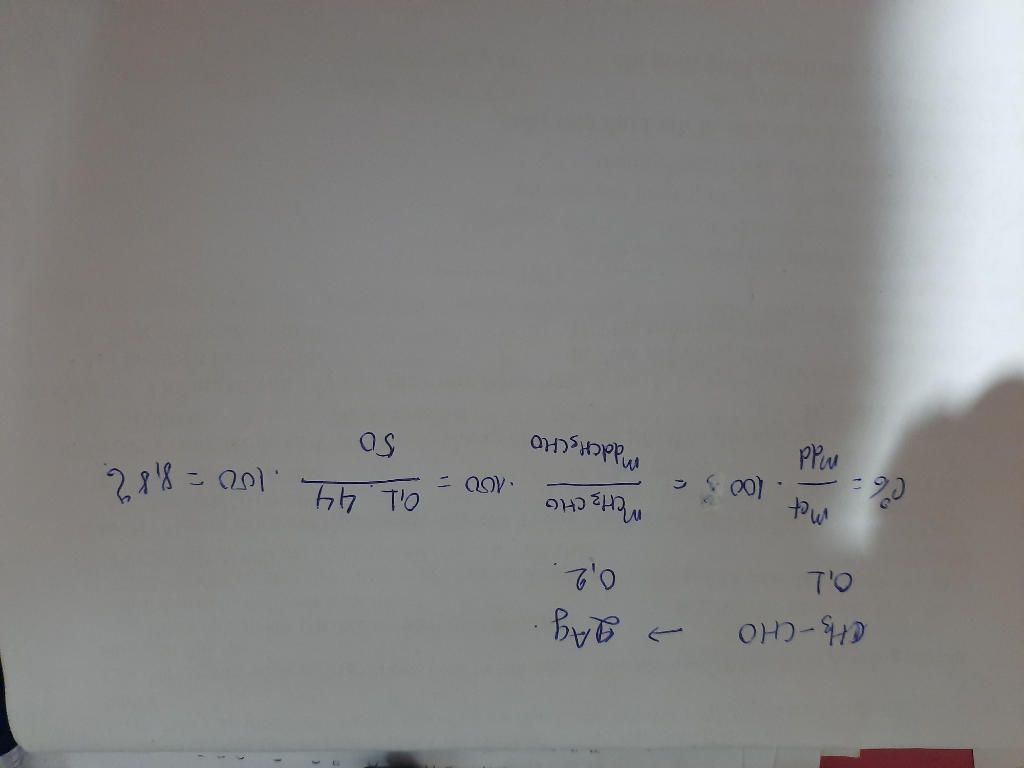 CH₃-CHO → 2Ag.
0,1 0,2.
C% = mct/mdd . 100 = mCH₃CHO/mddCH₃CHO . 100 = 0,1 . 44/50 . 100 = 8,8%